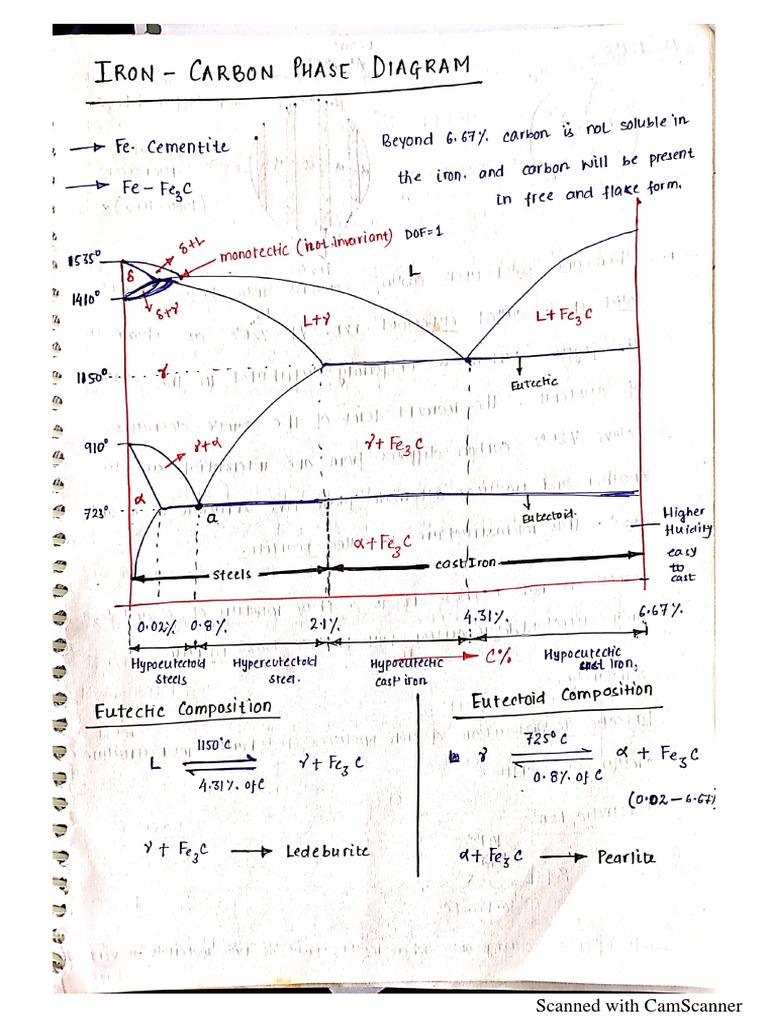 IRON - CARBON PHASE DIAGRAM
→ Fe- Cementite
→ Fe - Fe3C
Beyond 6.67% carbon is not soluble in
the iron. and carbon will be present
in free and flake form.
1535°
δ+L
monotectic (not invariant) DOF=1
δ
L
1410°
δ+γ
L+γ
L+ Fe3C
1150°
γ
Eutectic
910°
γ+α
γ+ Fe3C
α
723°
a
Eutectoid
Higher
fluidity
easy
to
cast
α+Fe3C
Steels
cast Iron
0.02% 0.8% 2.1% 4.31% 6.67%
Hypoeutectoid
steels
Hypereutectoid
steel.
Hypoeutectic
cast iron
C%
Hypoeutectic
cast Iron.
Eutectic Composition
L 1150°C γ+ Fe3C
4.31% of C
γ + Fe3C → Ledeburite
Eutectoid Composition
γ 725°C α + Fe3C
0.8% of C
(0.02-6.67)
α+ Fe3C → Pearlite
Scanned with CamScanner